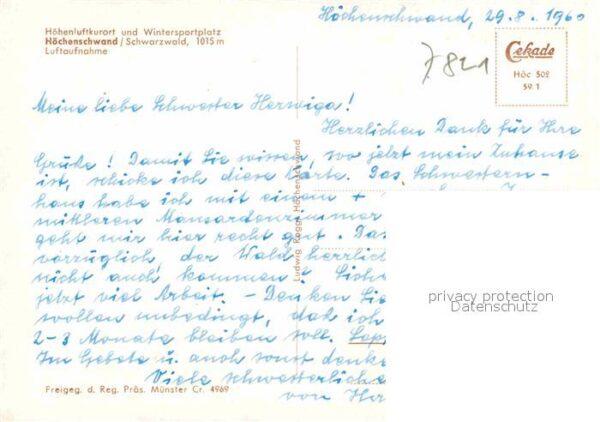 Höchenschwand, 29.8.1960
Höhenluftkurort und Wintersportplatz
Höchenschwand/Schwarzwald, 1015 m
Luftaufnahme
7821
Cekade
Höc 502
59.1
Meine liebe Schwester Herwiga!
Herzlichen Dank für Ihre
Grüße! Damit Sie wissen, wo jetzt mein Zuhause
ist, schicke ich diese Karte. Das Schwestern-
haus habe ich mit einem +
mittleren Mansardenzimmer
geht mir hier recht gut. Das
vorzüglich, der Wald herrlich
nicht auch kommen?
jetzt viel Arbeit. - Denken Sie
wollen unbedingt, daß ich
2-3 Monate bleiben soll.
Im Gebete u. auch sonst denke
Viele schwesterliche
von
Ludwig Rogg, Höchenschwand
Freigeg. d. Reg. Präs. Münster Cr. 4969
privacy protection
Datenschutz